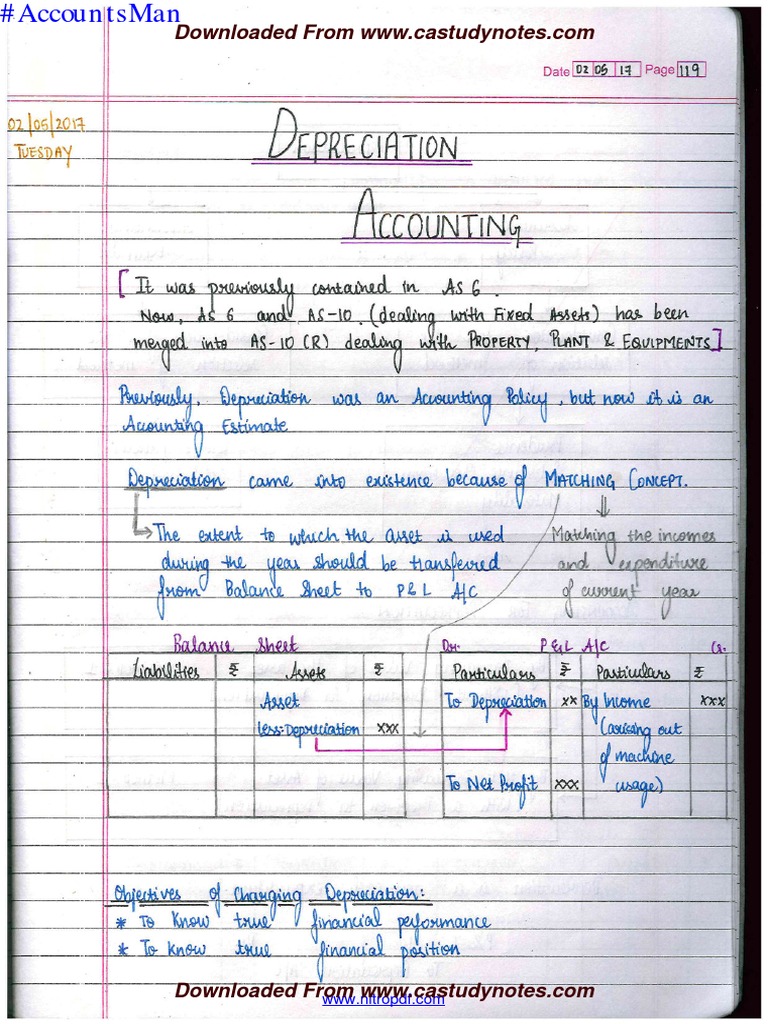 #AccountsMan
Downloaded From www.castudynotes.com
Date 02 05 17 Page 119
02/05/2017
TUESDAY
DEPRECIATION
ACCOUNTING
[It was previously contained in AS 6.
Now, AS 6 and AS-10 (dealing with Fixed Assets) has been
merged into AS-10 (R) dealing with PROPERTY, PLANT & EQUIPMENTS]
Previously, Depreciation was an Accounting Policy, but now it is an
Accounting Estimate
Depreciation came into existence because of MATCHING CONCEPT.
↳ The extent to which the asset is used
during the year should be transferred
from Balance Sheet to P&L A/C
⇓
Matching the incomes
and expenditure
of current year
Balance Sheet
Liabilities ₹ Assets ₹
Asset
Less:-Depreciation xxx
Dr. P&L A/C Cr.
Particulars ₹ Particulars ₹
To Depreciation xx By Income xxx
(arising out
of machine
To Net Profit xxx usage)
Objectives of Charging Depreciation:
* To know true financial performance
* To know true financial position
Downloaded From www.castudynotes.com
www.nitropdf.com